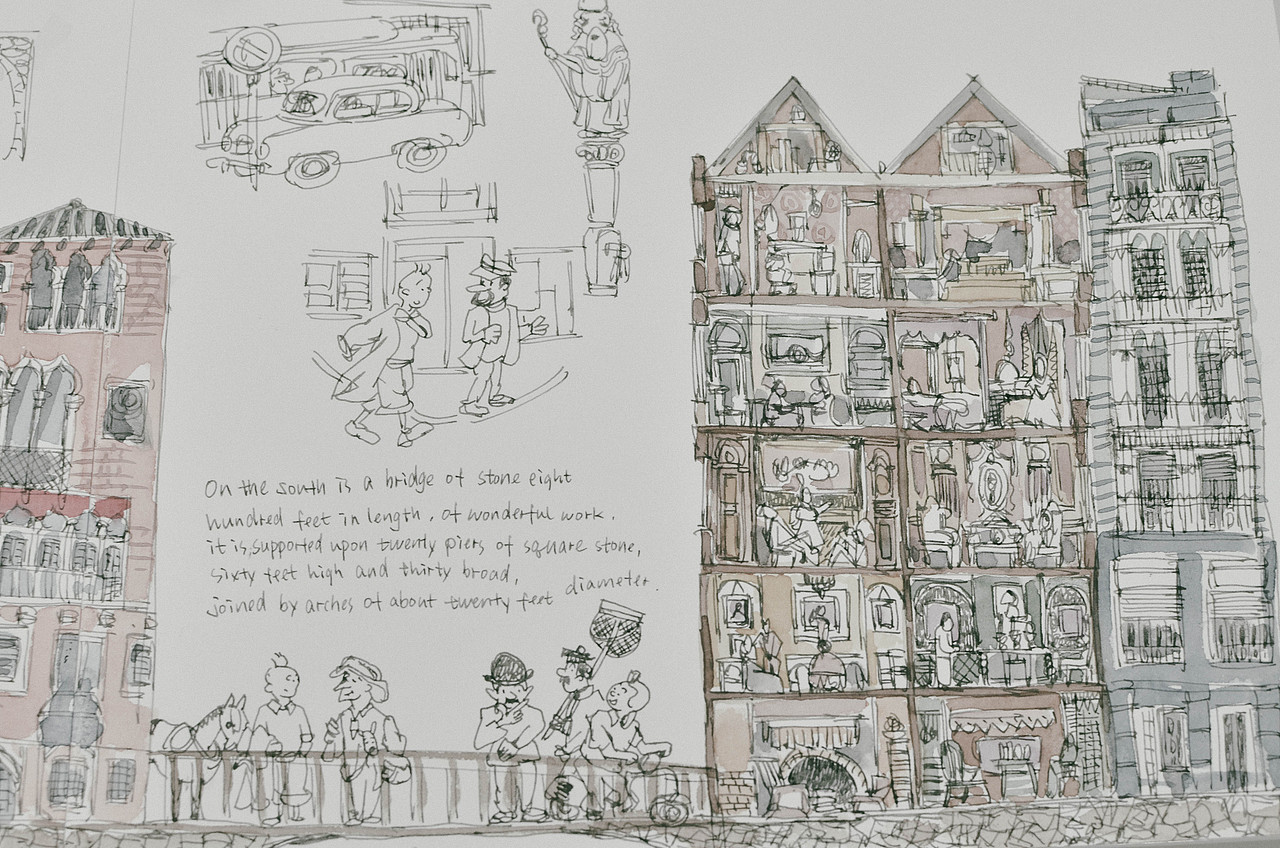 On the south is a bridge of stone eight
hundred feet in length, of wonderful work.
it is, supported upon twenty piers of square stone,
sixty feet high and thirty broad,
joined by arches of about twenty feet diameter.